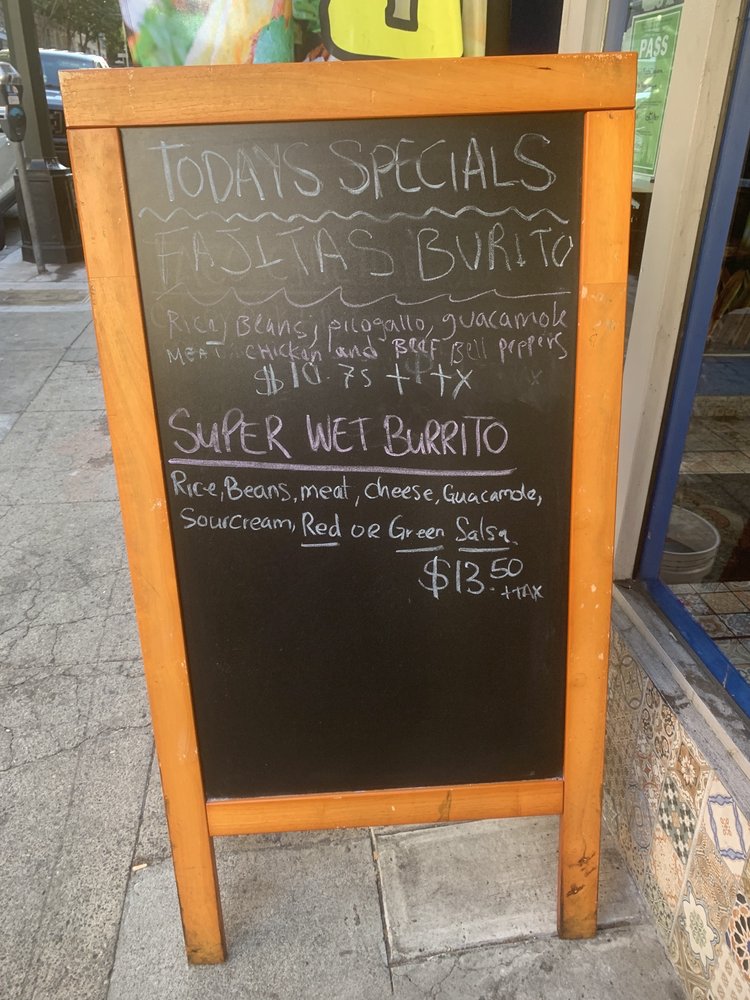 PASS
TODAYS SPECIALS
FAJITAS BURITO
Rice, Beans, picogallo, guacamole
MEAT chicken and BEEF, Bell peppers
$10.75 + tx
SUPER WET BURRITO
Rice, Beans, meat, cheese, Guacamole,
Sourcream, Red OR Green Salsa.
$13.50
+TAX